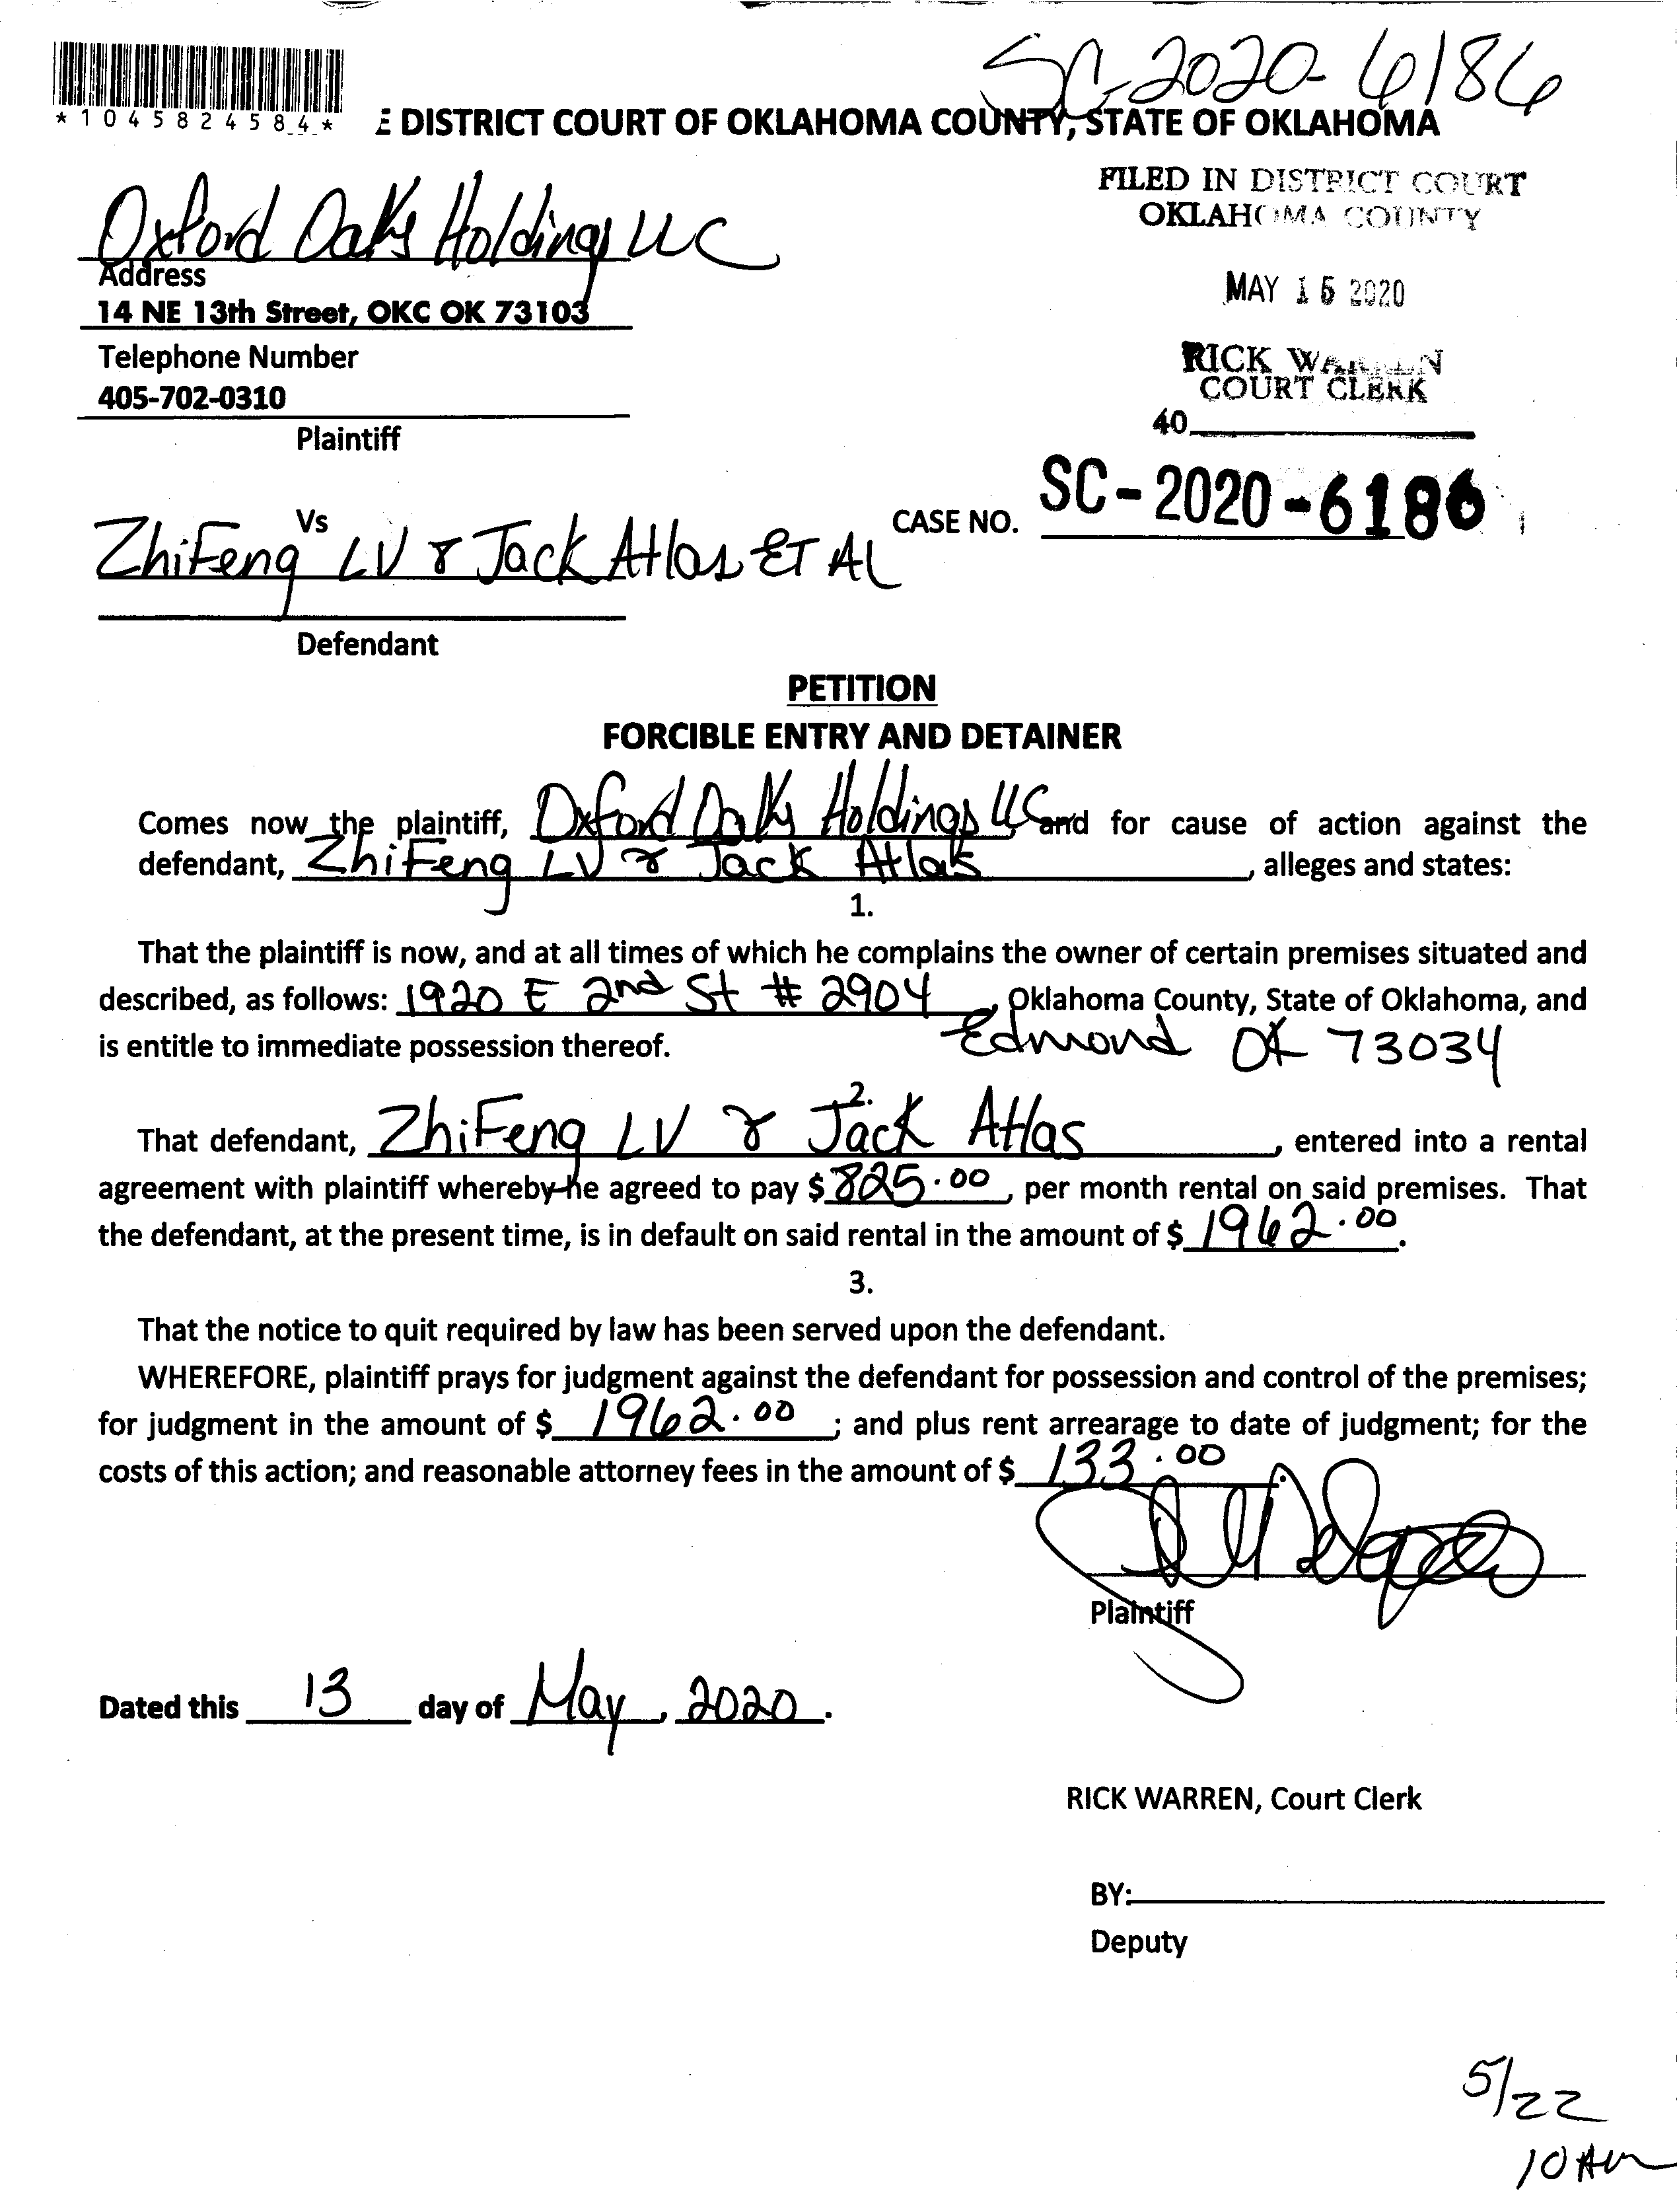 SC-2020-6186
*1045824584*
E DISTRICT COURT OF OKLAHOMA COUNTY, STATE OF OKLAHOMA
FILED IN DISTRICT COURT
OKLAHOMA COUNTY
Oxford Oaks Holdings LLC
Address
14 NE 13th Street, OKC OK 73103
MAY 15 2020
Telephone Number
405-702-0310
RICK WARREN
COURT CLERK
40
Plaintiff
Vs
CASE NO. SC-2020-6186
ZhiFeng LV & Jack Atlas ET AL
Defendant
PETITION
FORCIBLE ENTRY AND DETAINER
Comes now the plaintiff, Oxford Oaks Holdings LLC and for cause of action against the
defendant, ZhiFeng LV & Jack Atlas, alleges and states:
1.
That the plaintiff is now, and at all times of which he complains the owner of certain premises situated and
described, as follows: 1920 E 2nd St # 2904, Oklahoma County, State of Oklahoma, and
is entitle to immediate possession thereof. Edmond OK 73034
2.
That defendant, ZhiFeng LV & Jack Atlas, entered into a rental
agreement with plaintiff whereby he agreed to pay $ 825.00, per month rental on said premises. That
the defendant, at the present time, is in default on said rental in the amount of $ 1962.00.
3.
That the notice to quit required by law has been served upon the defendant.
WHEREFORE, plaintiff prays for judgment against the defendant for possession and control of the premises;
for judgment in the amount of $ 1962.00; and plus rent arrearage to date of judgment; for the
costs of this action; and reasonable attorney fees in the amount of $ 133.00.
Plaintiff
Dated this 13 day of May, 2020.
RICK WARREN, Court Clerk
BY:
Deputy
5/22
10 AM